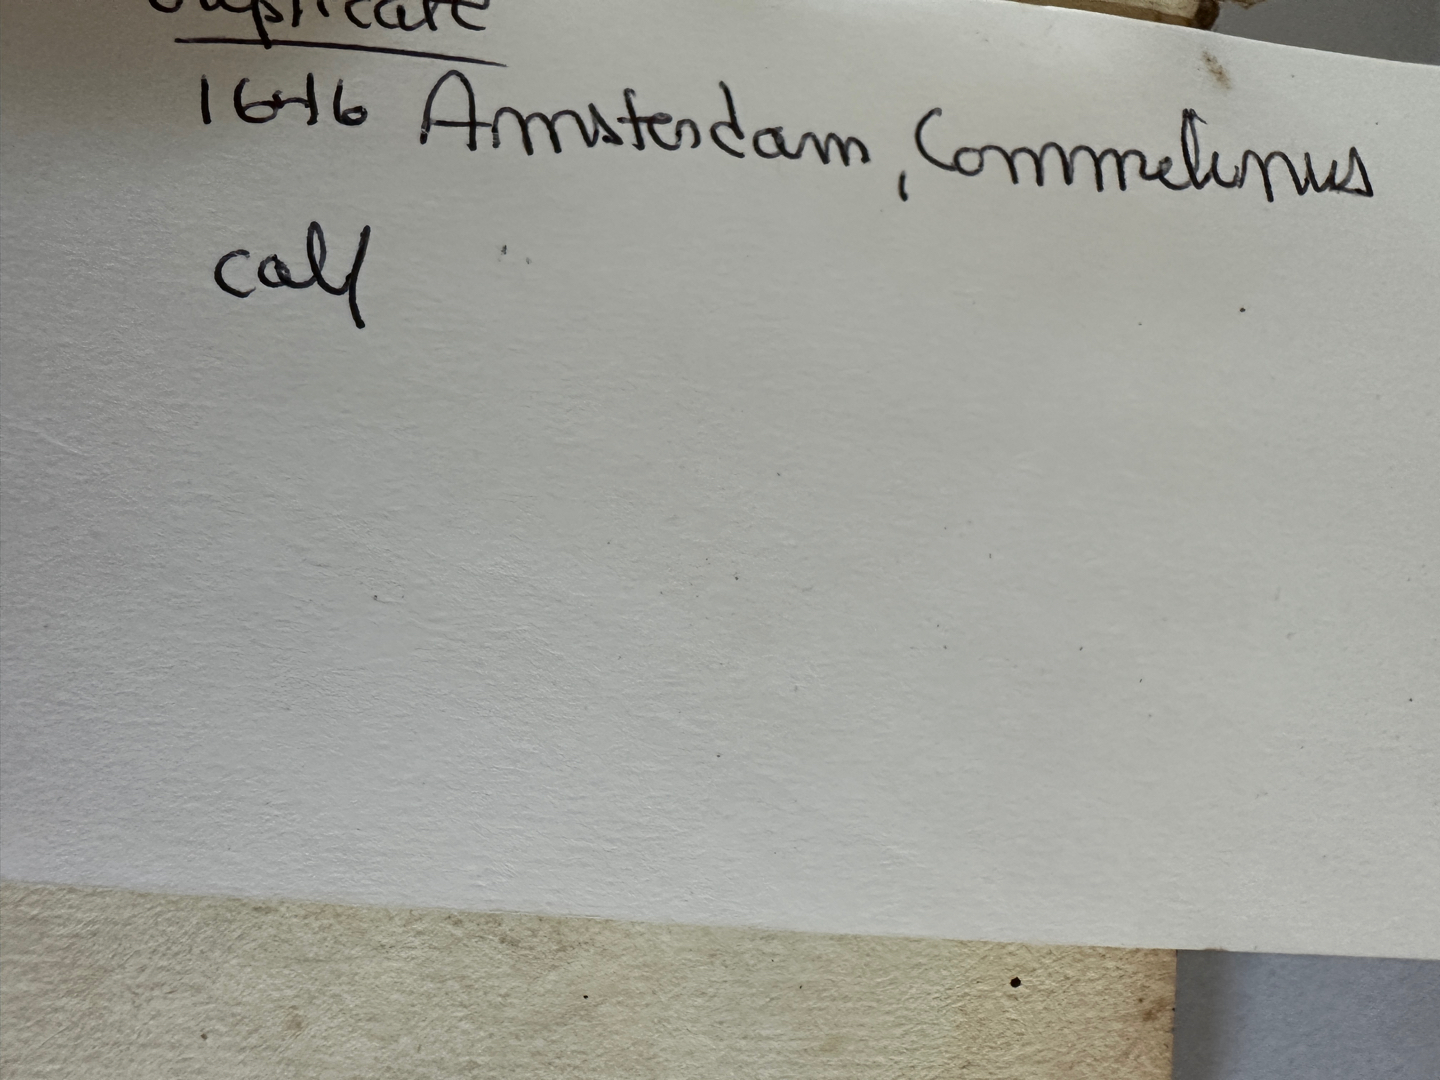 Duplicate
1646 Amsterdam, Commelinus
calf